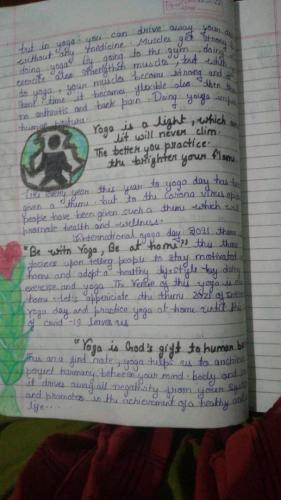 but in yoga you can drive away your
without any medicine. Muscles get strong
doing yoga by going to the gym, doing
exercise also strength muscle, but
to yoga, your muscles become strong and
same time it becomes flexible also. then
no arthritis and back pain. Doing yoga
human
Yoga is a light, which
lit will never dim.
The better you practice
the brighter your flame
Like every year this year to yoga day has
given a theme but to the corona virus
people have been given such a theme which
promote health and wellness.
International yoga day 2021 theme
"Be with Yoga, Be at home" this theme
focuses upon telling people to stay motivated
home and adopt a healthy lifestyle by doing
exercise and yoga. The venue of this yoga is
home let's appreciate the theme 2021 of
Yoga day and practice yoga at home until this
of covid-19 leaves us
"Yoga is God's gift to human
yoga helps us to
harmony between your mind body and
it drives away all negativity from your
and promotes in the achievement of a healthy
life...